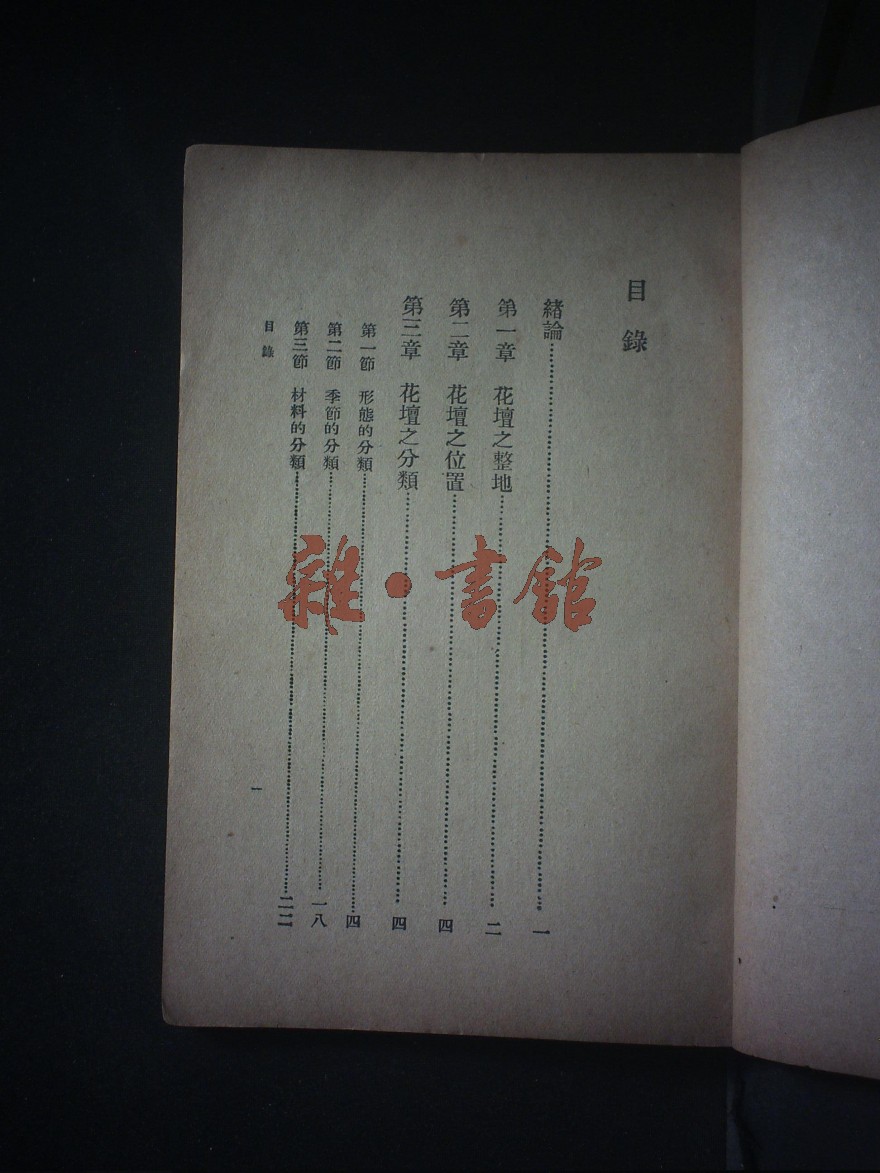 目錄
緒論……一
第一章 花壇之整地……二
第二章 花壇之位置……四
第三章 花壇之分類……四
第一節 形態的分類……四
第二節 季節的分類……一八
第三節 材料的分類……二二
目錄
一
雜·書館